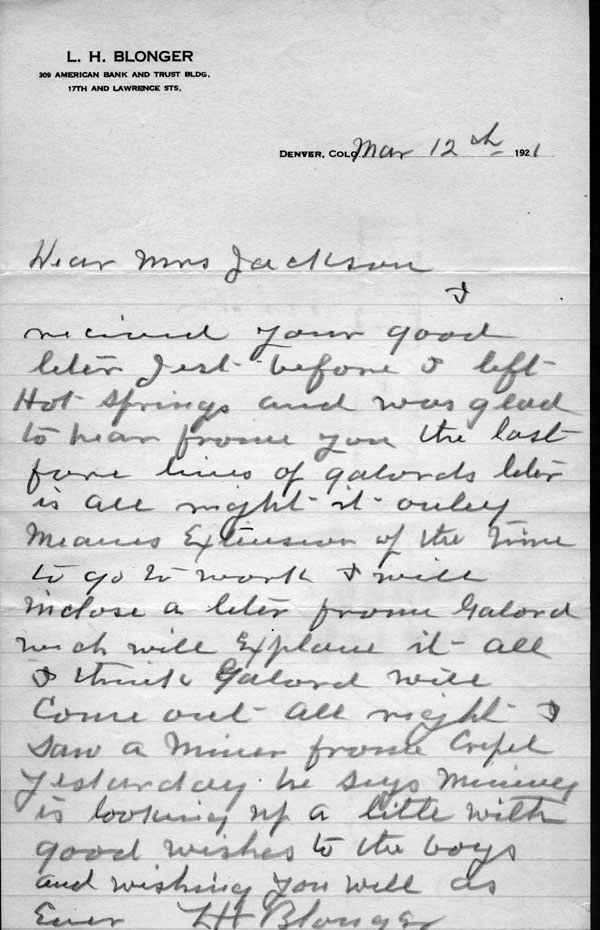 L. H. BLONGER
309 AMERICAN BANK AND TRUST BLDG.
17TH AND LAWRENCE STS.
DENVER, COLO. Mar 12th 1921
Dear Mrs Jackson
I
recieved your good
leter Jest before I left
Hot Springs and was glad
to hear frome you the last
fore lines of galords leter
is all right it onley
Means Extension of the Time
to go to work I will
inclose a leter frome Galord
wich will Explane it all
I think Galord will
Come out all right I
Saw a Miner frome Cripel
yesturday he says Mining
is looking up a little with
good wishes to the boys
and wishing you well as
Ever LH Blonger